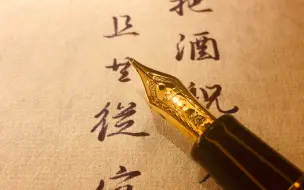 把酒祝
且共從